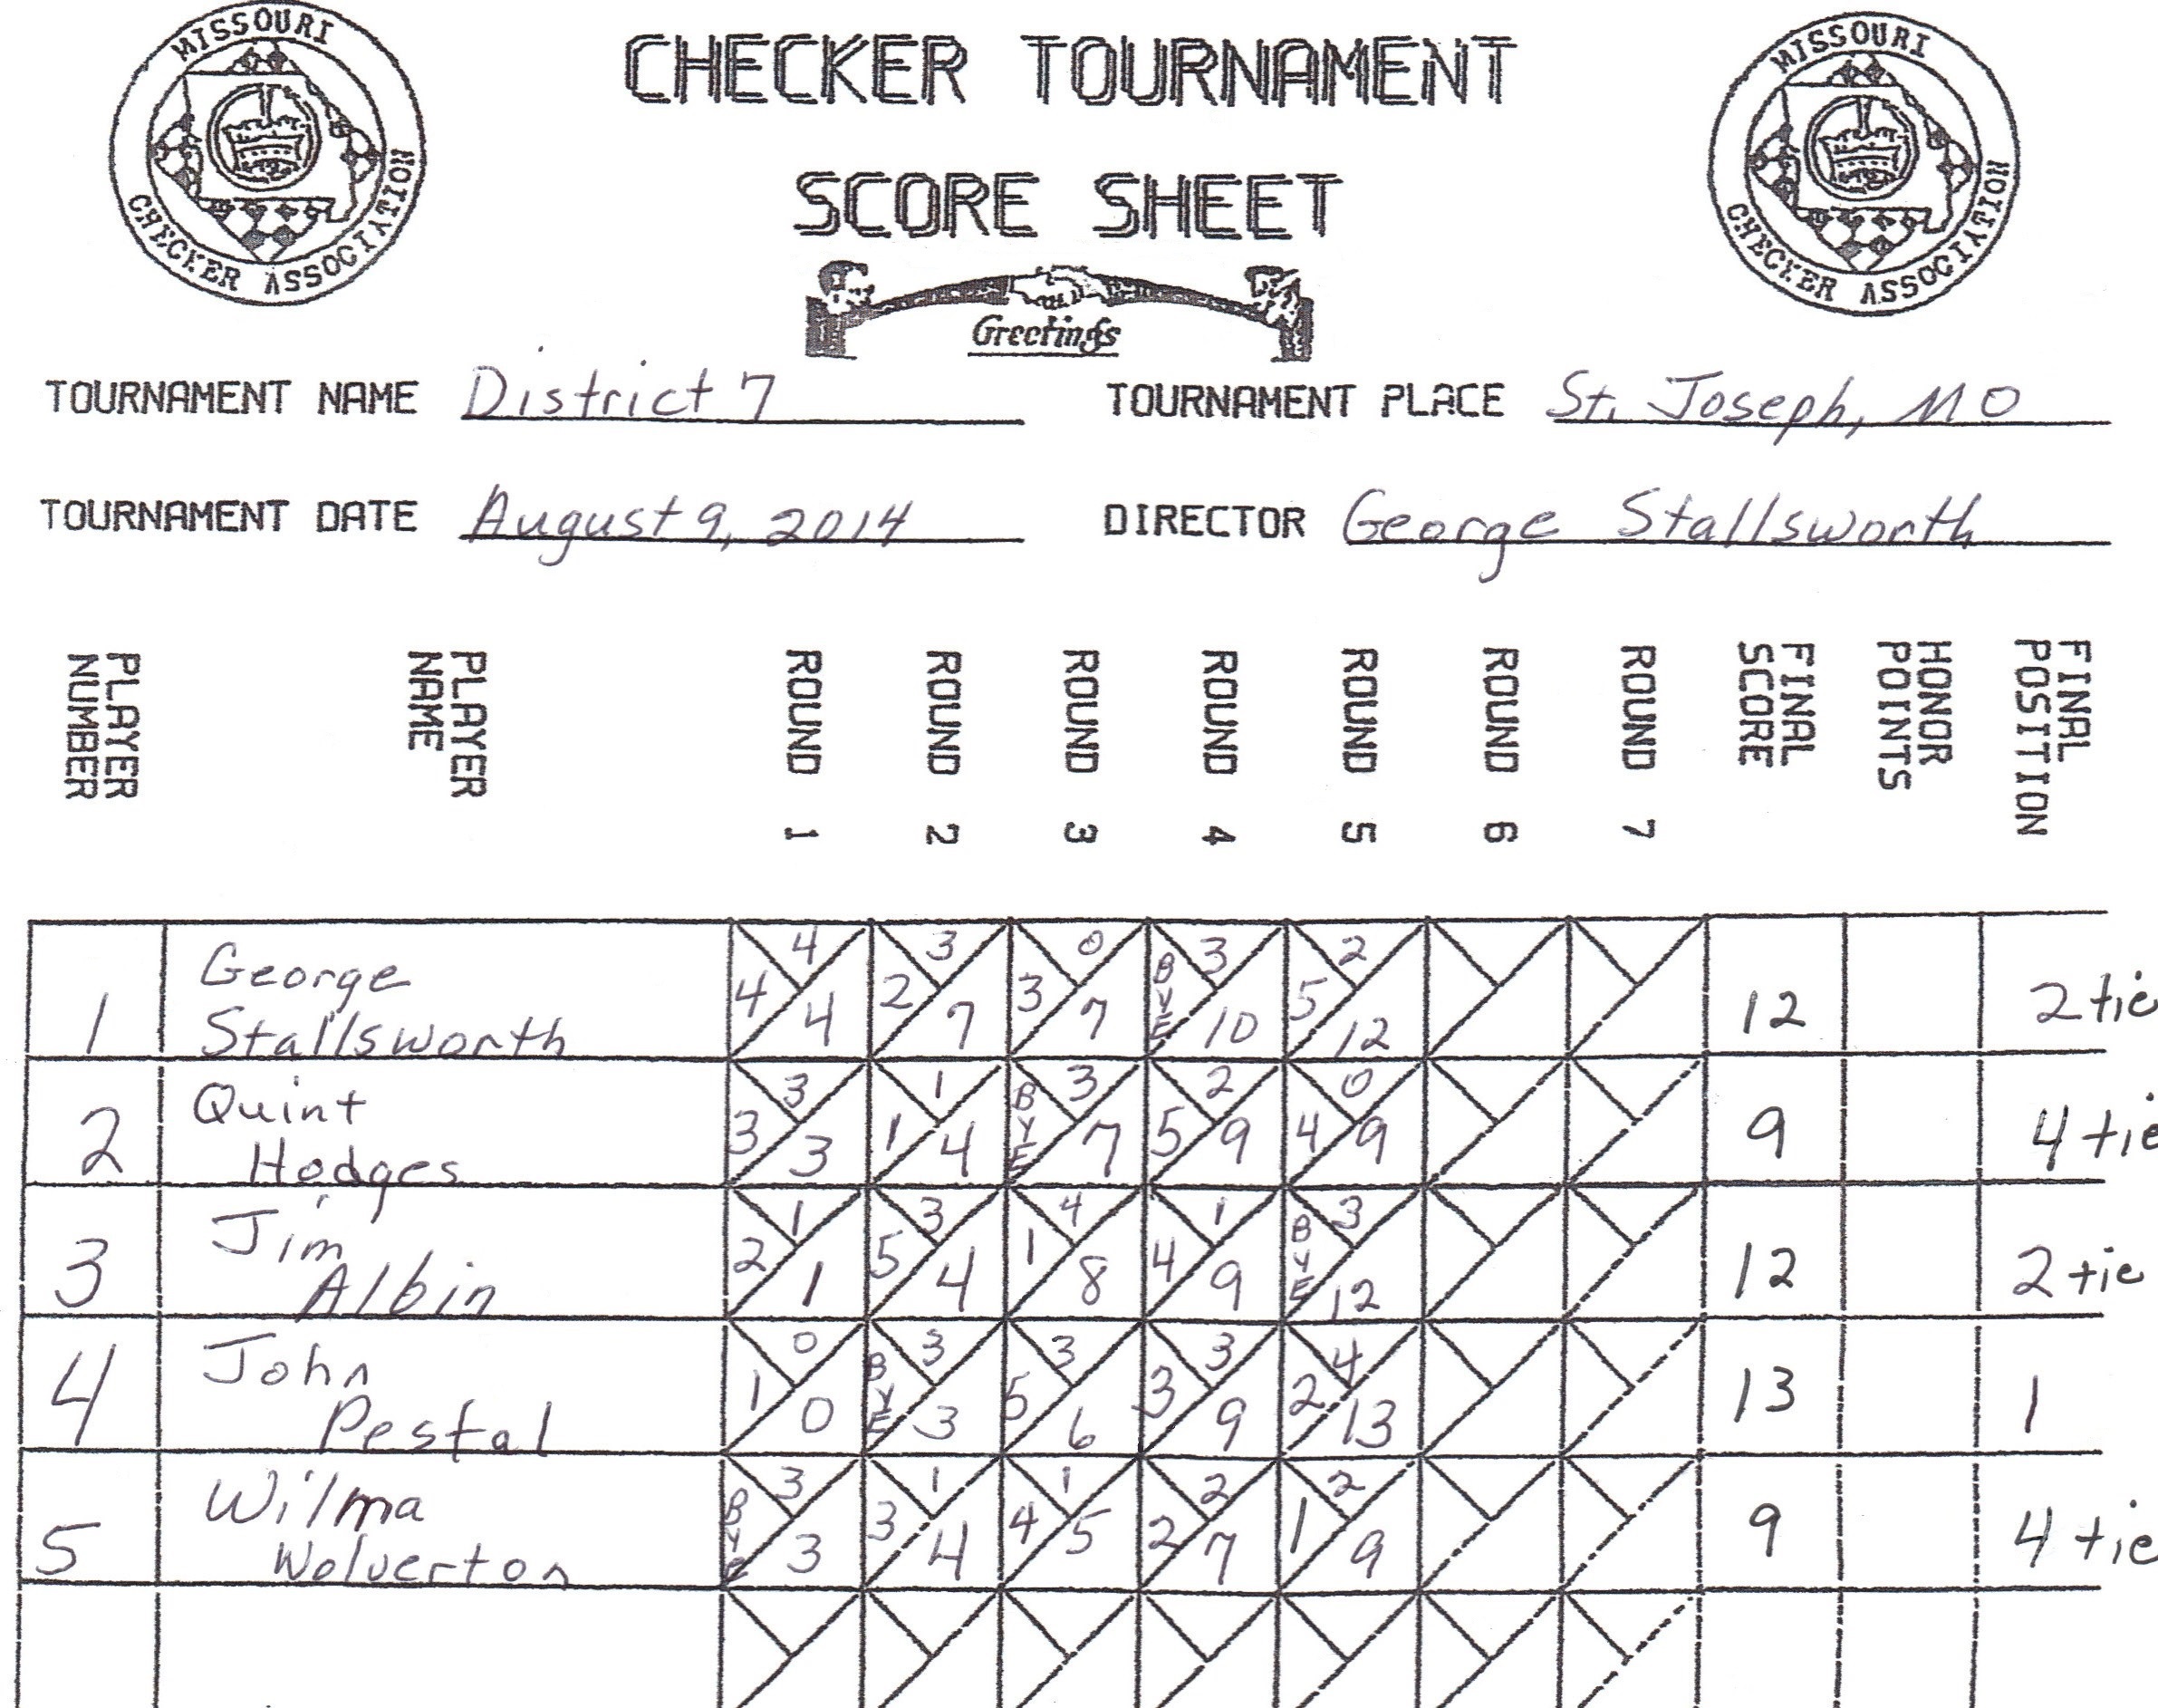 MISSOURI
CHECKER ASSOCIATION
CHECKER TOURNAMENT
SCORE SHEET
Greetings
MISSOURI
CHECKER ASSOCIATION
TOURNAMENT NAME District 7 TOURNAMENT PLACE St. Joseph, MO
TOURNAMENT DATE August 9, 2014 DIRECTOR George Stallsworth
PLAYER NUMBER PLAYER NAME ROUND 1 ROUND 2 ROUND 3 ROUND 4 ROUND 5 ROUND 6 ROUND 7 FINAL SCORE HONOR POINTS FINAL POSITION
4 3 0 3 2
George 4 2 3 BYE 5
1 Stallsworth 4 7 7 10 12 12 2 tie
3 1 3 2 0
Quint 3 1 BYE 5 4
2 Hodges 3 4 7 9 9 9 4 tie
1 3 4 1 3
Jim 2 5 1 4 BYE
3 Albin 1 4 8 9 12 12 2 tie
0 3 3 3 4
John 1 BYE 5 3 2
4 Pestal 0 3 6 9 13 13 1
3 1 1 2 2
Wilma BYe 3 4 2 1
5 Wolverton 3 4 5 7 9 9 4 tie